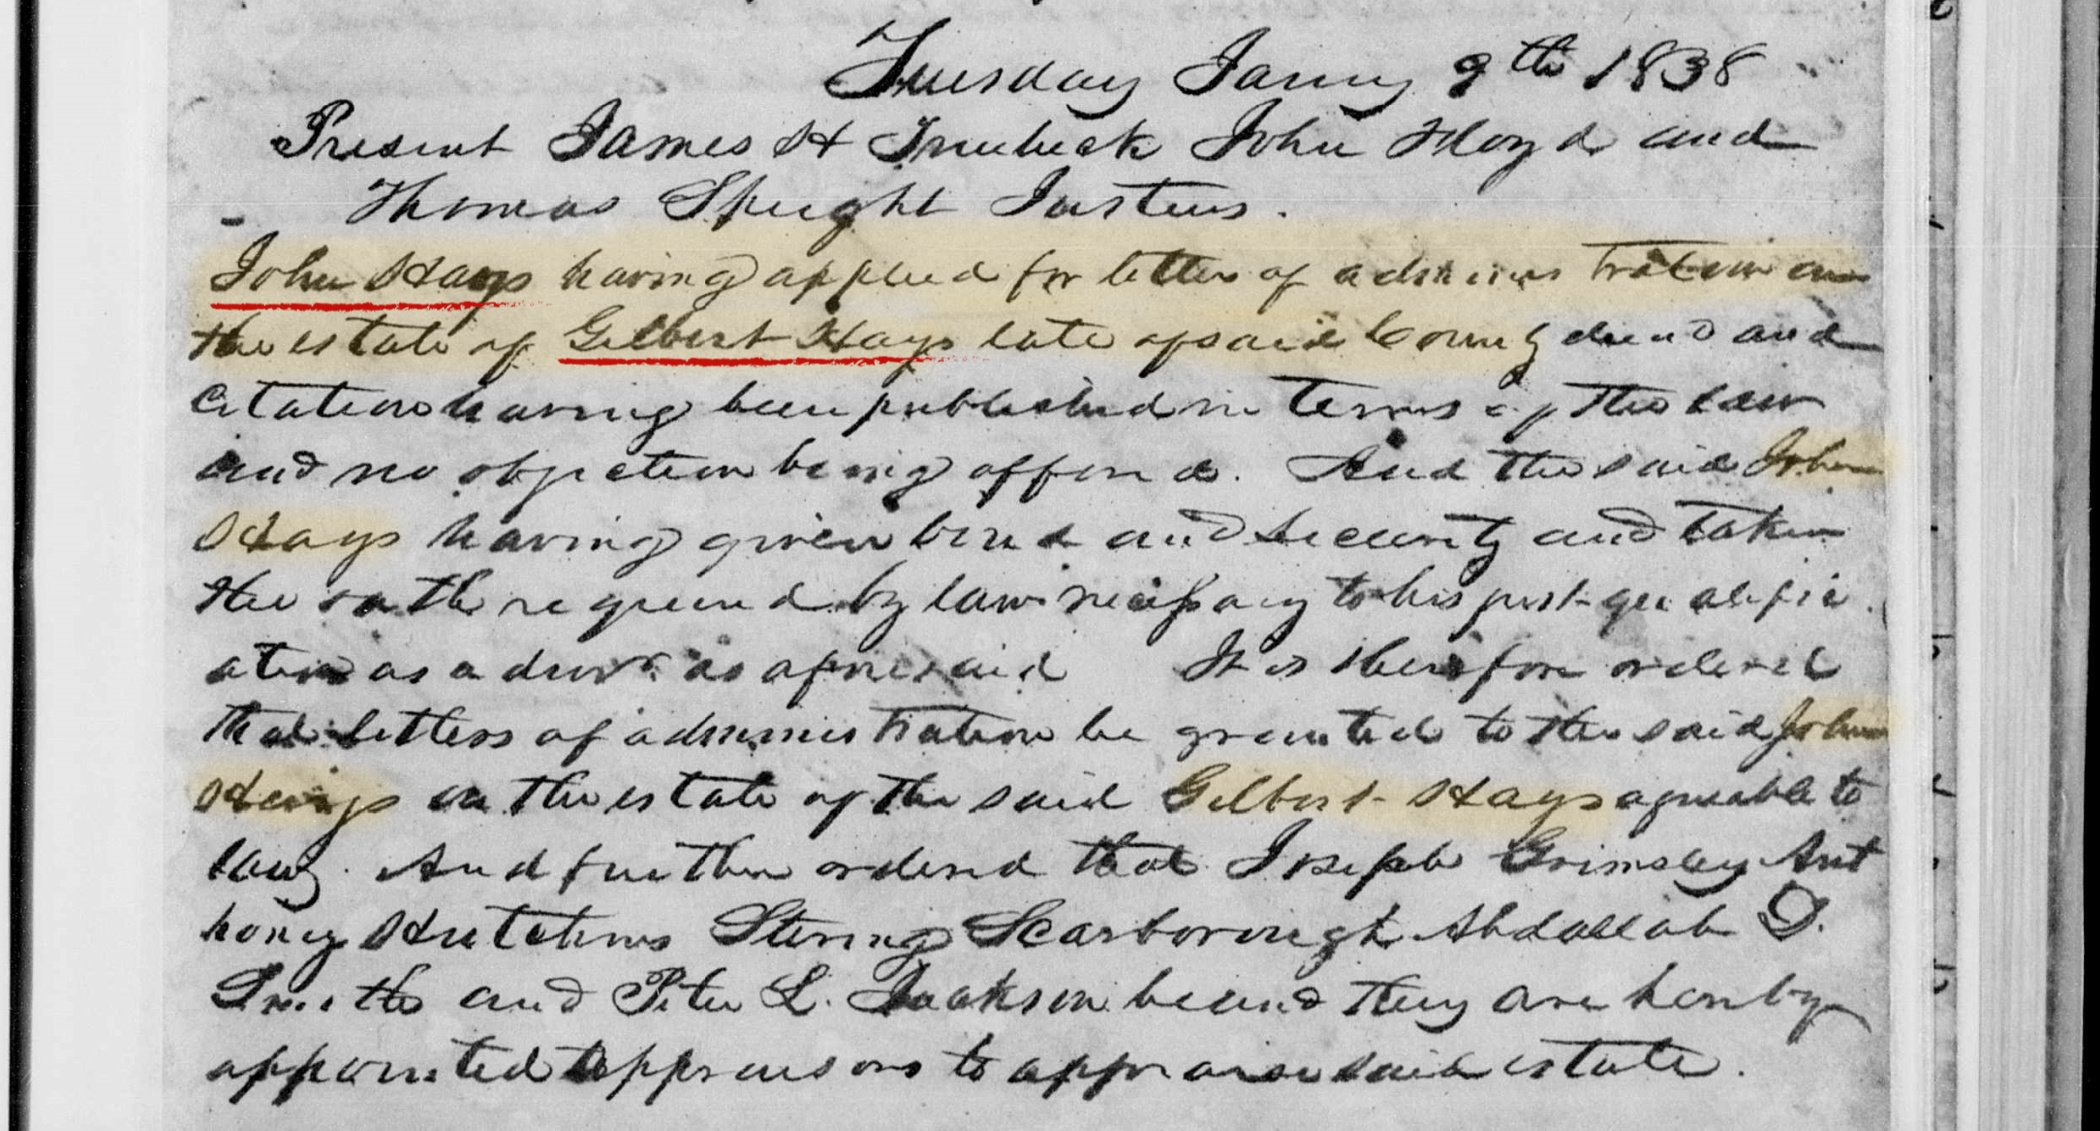 Tuesday Jany 9th 1838
Present James H John Floyd and
Thomas Speight Justices.
John Hays having applied for letters of administration on
the estate of Gilbert Hays late of said County decsd and
citation having been published in terms of the law
and no objection being offered. And the said John
Hays having given bond and security and taken
the oath required by law necessary to his just qualific
ation as admr. as aforesaid It is therefore ordered
that letters of administration be granted to the said John
Hays on the estate of the said Gilbert Hays agreeable to
law. And further ordered that Joseph Grimsley Ant
honey Hutchins Stering Scarborough Abdallah D.
Smith and Peter L. Jackson be and they are hereby
appointed appraisors to appraise said estate.